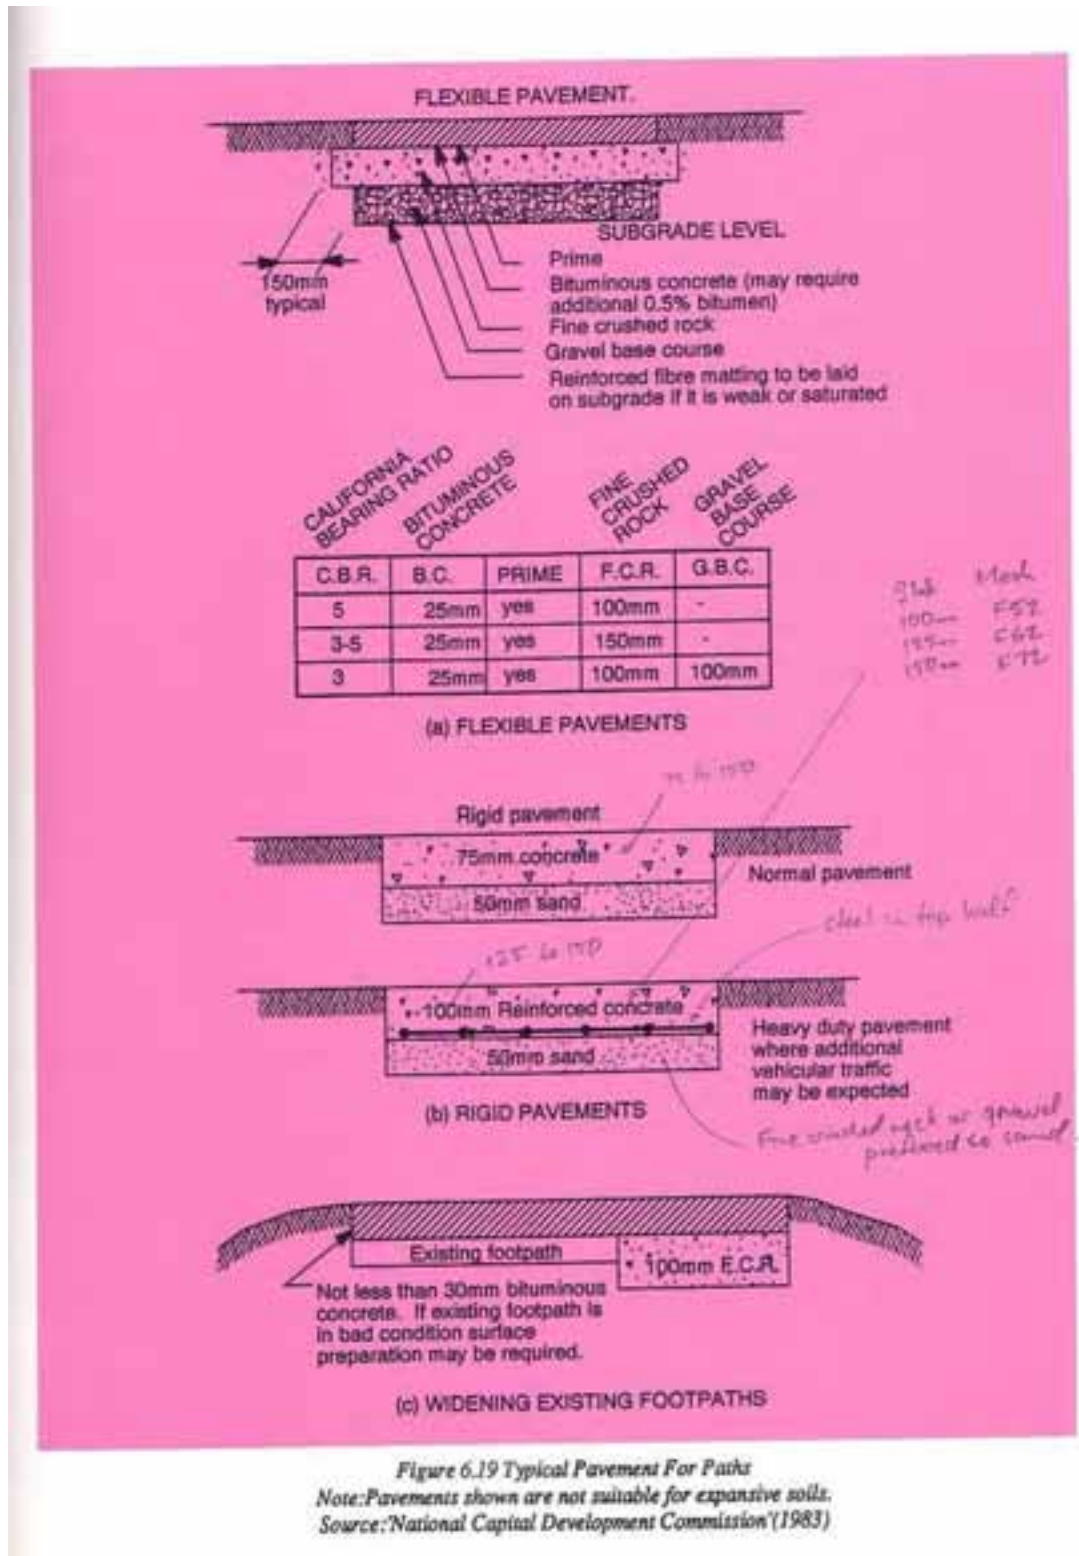 FLEXIBLE PAVEMENT.
SUBGRADE LEVEL
150mm
typical
Prime
Bituminous concrete (may require
additional 0.5% bitumen)
Fine crushed rock
Gravel base course
Reinforced fibre matting to be laid
on subgrade if it is weak or saturated
CALIFORNIA
BEARING RATIO
BITUMINOUS
CONCRETE
FINE
CRUSHED
ROCK
GRAVEL
BASE
COURSE
C.B.R. B.C. PRIME F.C.R. G.B.C.
5 25mm yes 100mm -
3-5 25mm yes 150mm -
3 25mm yes 100mm 100mm
Slab Mesh
100mm F52
125mm F62
150mm F72
(a) FLEXIBLE PAVEMENTS
to 150
Rigid pavement
75mm concrete
50mm sand
Normal pavement
steel in top half
125 to 150
100mm Reinforced concrete
50mm sand
Heavy duty pavement
where additional
vehicular traffic
may be expected
(b) RIGID PAVEMENTS
Fine crushed rock or gravel
preferred to sand.
Existing footpath
100mm F.C.R.
Not less than 30mm bituminous
concrete. If existing footpath is
in bad condition surface
preparation may be required.
(c) WIDENING EXISTING FOOTPATHS
Figure 6.19 Typical Pavement For Paths
Note:Pavements shown are not suitable for expansive soils.
Source:'National Capital Development Commission'(1983)